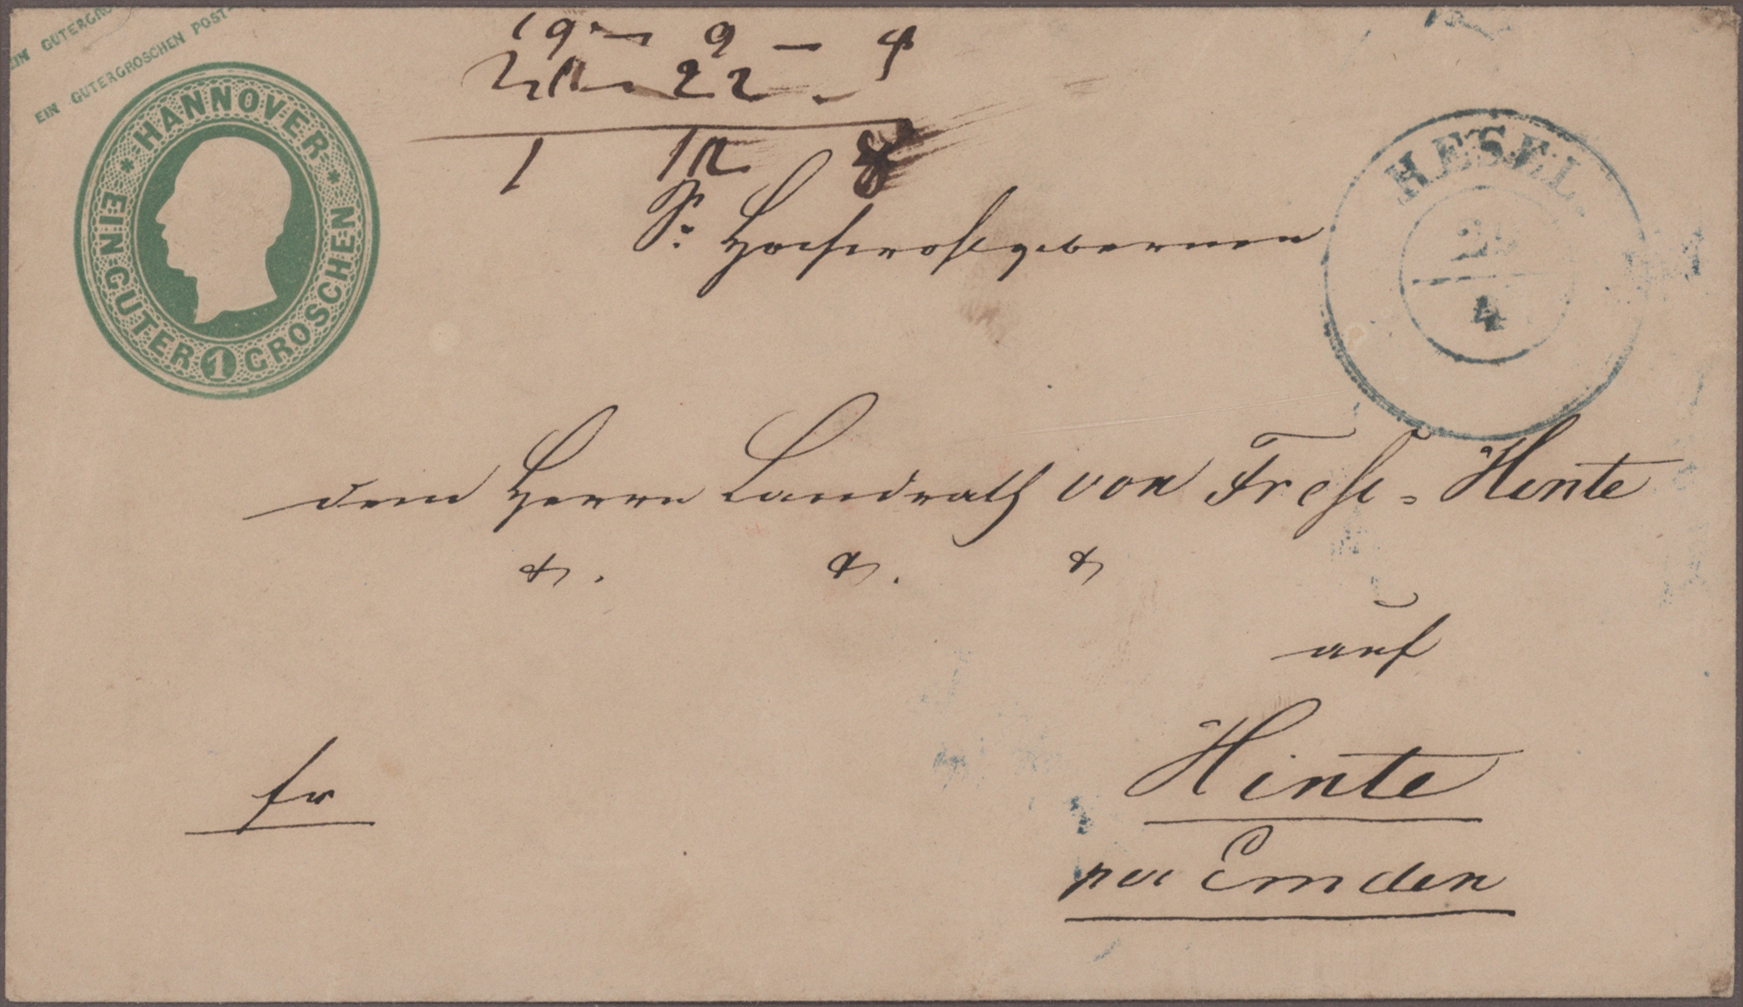 EIN GUTERGR
EIN GUTERGROSCHEN POST-
* HANNOVER *
EIN GUTER 1 GROSCHEN
19 — 9 — 4
22 -
1
8
HESEL.
4
Sr Hochwohlgeboren
dem Herrn Landrath von Frese-Hinte
auf
Hinte
fr
per Emden